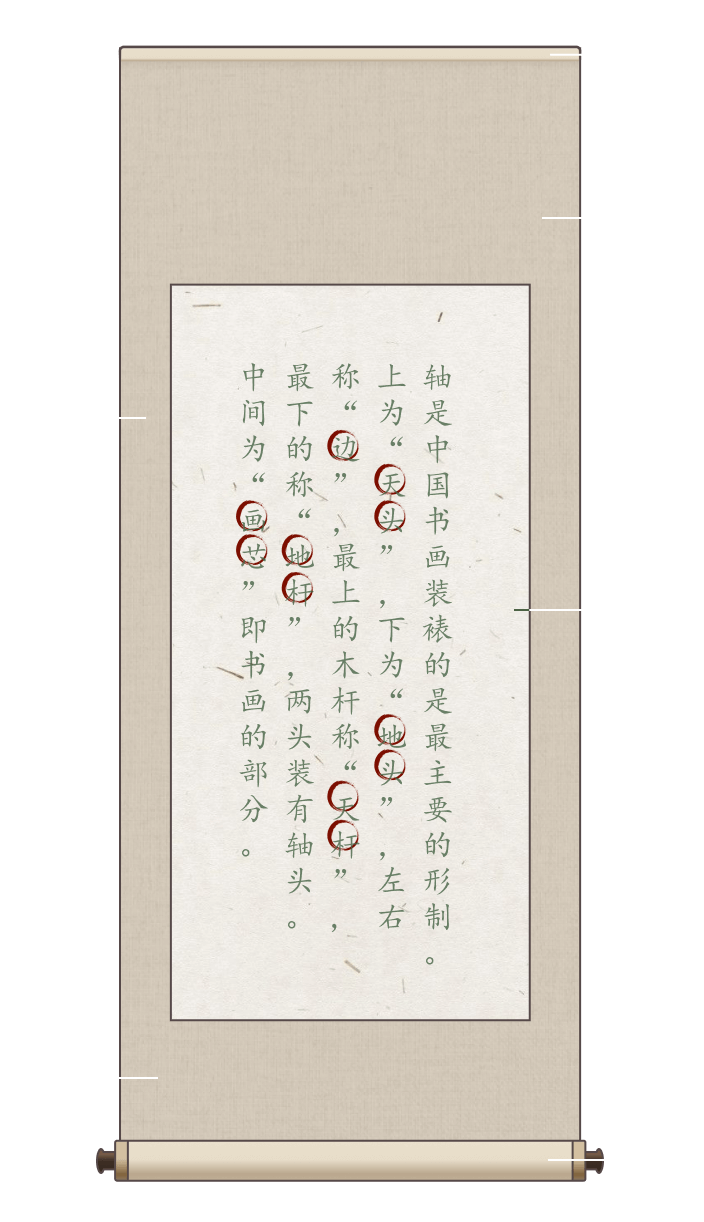 轴是中国书画装裱的是最主要的形制。
上为“天头”，下为“地头”，左右
称“边”，最上的木杆称“天杆”，
最下的称“地杆”，两头装有轴头。
中间为“画芯”即书画的部分。